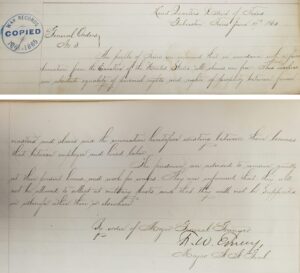 Head Quarters District of Texas
Galveston Texas June 19th 1865
WAR RECORDS
COPIED
1861-1865
General Orders
No. 3
The people of Texas are informed that in accordance with a
from the Executive of the United States, all slaves are free. This involves
an absolute equality of personal rights and rights of property between former
masters and slaves and the connection heretofore existing between them becomes
that between employer and hired labor.
The freedmen are advised to remain quietly
at their present homes and work for wages. They are informed that they will
not be allowed to collect at military posts and that they will not be supported
in idleness either there or elsewhere.
By order of Major General Granger
F.W. Emery
Major A.A. Genl.